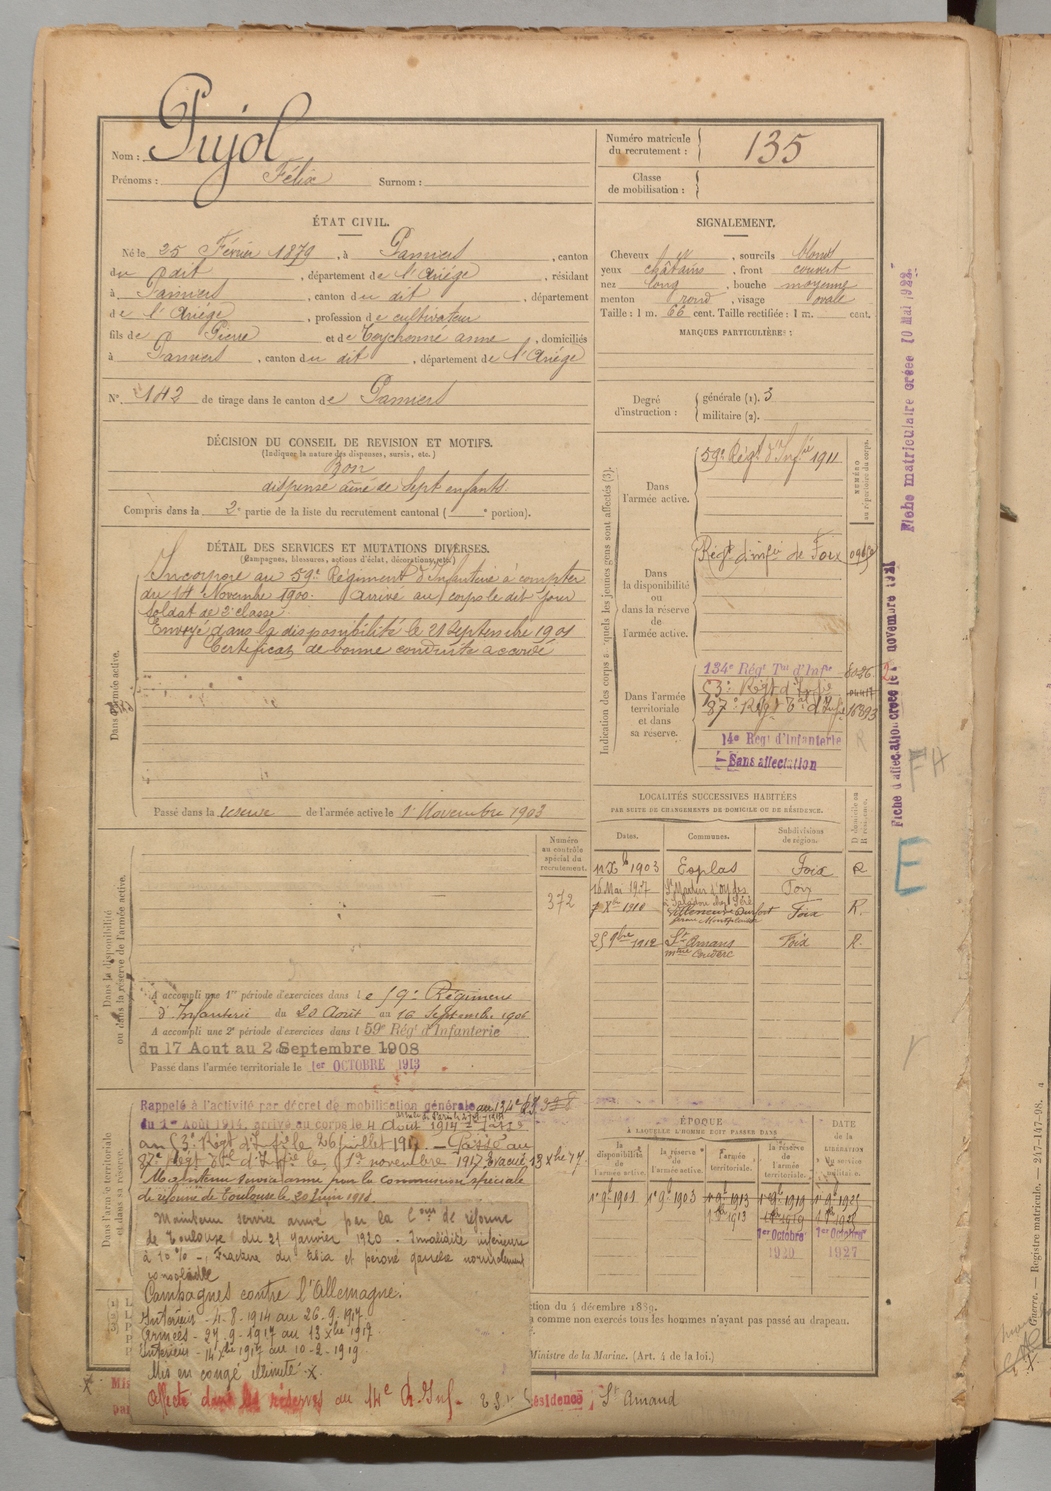 Nom : Pujol
Prénoms : Félix Surnom :
Numéro matricule du recrutement : 135
Classe de mobilisation :
ÉTAT CIVIL.
Né le 25 Février 1879, à Pamiers, canton
du dit, département de l'Ariège, résidant
à Pamiers, canton du dit, département
de l'Ariège, profession de cultivateur
fils de Pierre et de anne, domiciliés
à Pamiers, canton du dit, département de l'Ariège
N° 142 de tirage dans le canton de Pamiers
SIGNALEMENT.
Cheveux, sourcils blonds
yeux châtains, front couvert
nez long, bouche moyenne
menton rond, visage ovale
Taille : 1 m. 66 cent. Taille rectifiée : 1 m. cent.
MARQUES PARTICULIÈRES :
Degré d'instruction : générale (1). 3
militaire (2).
DÉCISION DU CONSEIL DE REVISION ET MOTIFS.
(Indiquer la nature des dispenses, sursis, etc.)
Bon
dispensé aîné de sept enfants
Compris dans la 2e partie de la liste du recrutement cantonal ( e portion).
DÉTAIL DES SERVICES ET MUTATIONS DIVERSES.
(Campagnes, blessures, actions d'éclat, décorations, etc.)
Dans l'armée active.
Incorporé au 59e Régiment d'Infanterie à compter
du 14 Novembre 1900. Arrivé au corps le dit jour
soldat de 2e classe.
Envoyé dans la disponibilité le 21 Septembre 1901
Certificat de bonne conduite accordé
Passé dans la réserve de l'armée active le 1er Novembre 1903
Indication des corps auxquels les jeunes gens sont affectés (3).
NUMÉRO au répertoire du corps.
Dans l'armée active.
59e Régt d'Infie 1911
Dans la disponibilité ou dans la réserve de l'armée active.
Régt d'infie de Foix
Dans l'armée territoriale et dans sa réserve.
134e Régt Tal d'Infie
53e Régt d'Infie
87e Régt Tal d'Infie 16893
14e Régt d'Infanterie R
Sans affectation
Fiche matriculaire créée 10 Mai 1922
Fiche d'affectation créée le 1 novembre 1921
E
LOCALITÉS SUCCESSIVES HABITÉES
PAR SUITE DE CHANGEMENTS DE DOMICILE OU DE RÉSIDENCE.
Dates. Communes. Subdivisions de région. D domicile ou R résidence.
1903 Esplas Foix R
16 Mai 1907 Foix
7 Xbre 1910 Foix R.
25 9bre 1912 St Amans Foix R.
Dans la disponibilité ou dans la réserve de l'armée active.
Numéro au contrôle spécial du recrutement.
372
A accompli une 1re période d'exercices dans le 59e Régiment
d'Infanterie du 20 Août au 16 Septembre 1906
A accompli une 2e période d'exercices dans l 59e Rég d'Infanterie
du 17 Aout au 2 Septembre 1908
Passé dans l'armée territoriale le 1er OCTOBRE 1913
Dans l'armée territoriale et dans sa réserve.
Rappelé à l'activité par décret de mobilisation générale au 134e
du 1er Août 1914, arrivé au corps le 4 Août 1914 - Passé
au 53e Régt d'Infie le 26 juillet - Passé au
87e Régt Tal d'Infie le 1er novembre 1917. Evacué 13 Xbre 17.
Maintenu service armé par la Commission spéciale
de réforme de Toulouse le 20 juin 1918
Maintenu service armé par la Com de réforme
de Toulouse du 21 janvier 1920 - Invalidité inférieure
à 10 % - Fracture du tibia et péroné gauche normalement
consolidée
Campagnes contre l'Allemagne.
Intérieur - 4-8-1914 au 26-9-1917
Armées - 27-9-1917 au 13 Xbre 1917.
Intérieur - 14 Xbre 1917 au 10-2-1919
Mis en congé illimité X
Affecté dans les réserves au 14e R. Inf.
résidence, St Amand
ÉPOQUE
À LAQUELLE L'HOMME EST PASSÉ DANS
la disponibilité de l'armée active.
la réserve de l'armée active.
l'armée territoriale.
la réserve de l'armée territoriale.
DATE de la LIBÉRATION du service militaire.
1er 9 1901 1er 9 1903 1er 9 1913 1er 9 1919 1er 9 1925
1913 1919
1er Octobre 1er Octobre
1920 1927
ction du 4 décembre 1889.
comme non exercés tous les hommes n'ayant pas passé au drapeau.
Ministre de la Marine. (Art. 4 de la loi.)
Guerre. — Registre matricule. — 247-147-98.